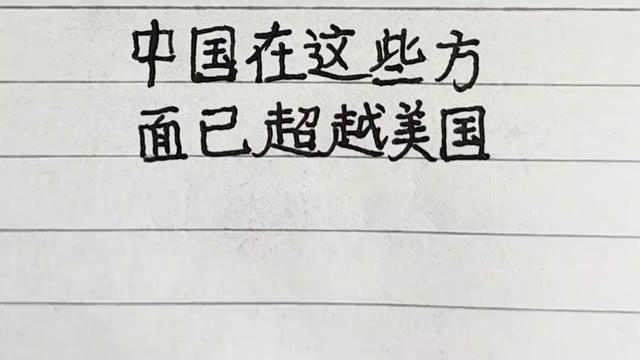 中国在这些方
面已超越美国